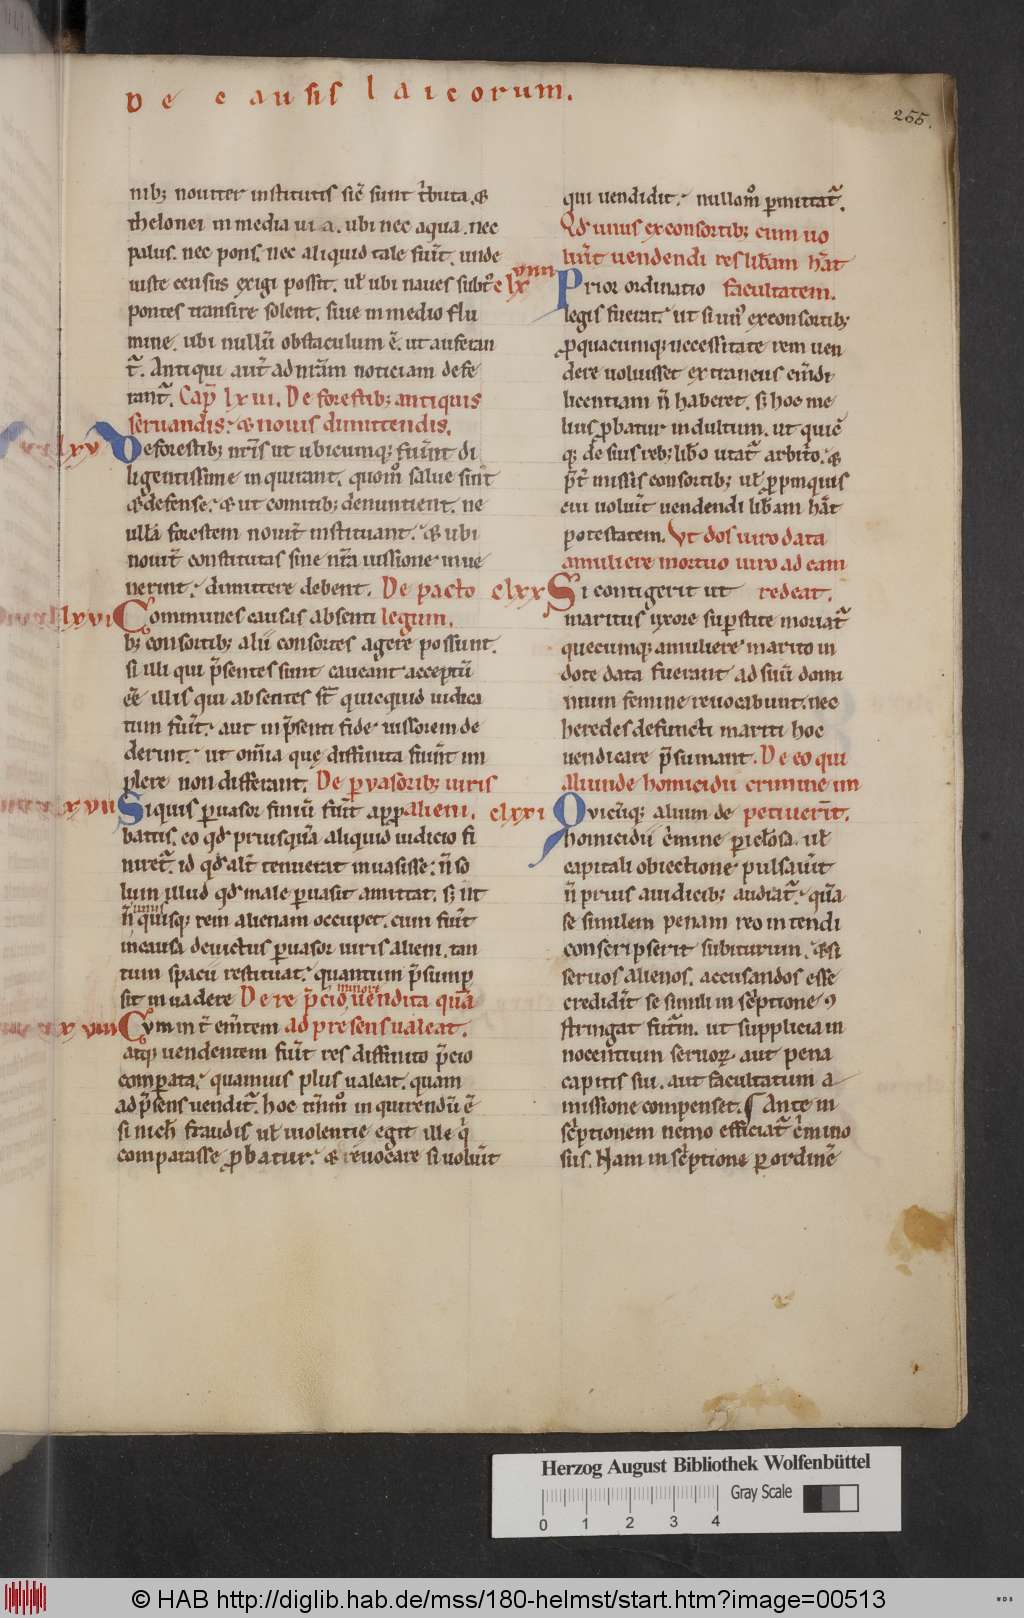 De causis laicorum.
255.
nib; nouiter institutis sic̄ sunt t̓buta, &
thelonei in media uia, ubi nec aqua, nec
palus, nec pons, nec aliquid tale fuer̄t, unde
iuste census exigi possit, ul̓ ubi naues subt̓
pontes transire solent, siue in medio flu
mine, ubi nullū obstaculum ē, ut auferan
t᷑. Antiqui aut̄ ad nr̄am noticiam defe
rant᷑. Cap̄ lxvi. De forestib; antiquis
seruandis, & nouis dimittendis.
lxv De forestib; nr̄is ut ubicumq; fuer̄nt di
ligentissime inquirant, quom̊ salue sint
& defense, & ut comitib; denuntient, ne
ullā forestem nouit̄ instituant, & ubi
nouit̄ constitutas sine nr̄a iussione inue
nerint, dimittere debent. De pacto
lxvi Communes causas absenti legum.
b; consortib; alii consortes agere possunt,
si illi qui p̄sentes sunt caueant acceptū
eē illis qui absentes st̄ quicquid iudica
tum fuer̄t, aut in p̄senti fide iussorem de
derint, ut om̄ia que diffinita fuer̄int im
plere non differant. De p̱uasorib; iuris
lxvii Siquis p̱uasor finiū fuer̄t app alieni.
batus, eo qd̄ priusquā aliquid iudicio fi
niret᷑, id qd̄ alt̄ tenuerat inuasisse, n̄ so
lum illud qd̄ male p̱uasit amittat, s; ut
n̄ unusquisq; rem alienam occupet, cum fuer̄t
in causa deuictus p̱uasor iuris alieni, tan
tum spacii restituat, quantum p̄sump
sit inuadere De re p̄cio minore uendita quā
lxviii Cum int̄ emtem ad presens ualeat.
atq; uendentem fuer̄t res diffinito p̄cio
comparata, quamuis plus ualeat, quam
ad p̄sens uendit᷑, hoc tm̄m̊ inquirendū ē
si nich̄ fraudis ul̓ uiolentie egit ille q̓
comparasse probatur, & reuocare si uoluer̄t
qui uendidit, nullom̊ p̱mittat᷑.
Qd̄ unus ex consortib; cum uo
luer̄t uendendi res lib̄am hab̄at
clxviiii Prior ordinatio facultatem.
legis fuerat, ut si un᷒ ex consortib;
p̱quacumq; necessitate rem uen
dere uoluisset extraneus em̄di
licentiam n̄ haberet, s; hoc me
lius probatur indultum, ut quic̄
q; de suis reb; lib̄o utat᷑ arbitrio, &
p̄t̄ missis consortib; ul̓ propinquis
cui uoluer̄t uendendi lib̄am hab̄at
potestatem. Ut dos uiro data
a muliere mortuo uiro ad eam
clxx Si contigerit ut redeat.
maritus uxore sup̱stite moriat᷑
quecumq; a muliere marito in
dote data fuerant ad suū domi
nium femine reuocabunt, nec
heredes defuncti mariti hoc
uendicare p̄sumant. De eo qui
aliunde homicidii crimine im
clxxi Quicūq; alium de petiuerit.
homicidii c̓mine p̱iclosa, ul̓
capitali obiectione pulsauer̄t
n̄ prius a iudicib; audiat᷑, quā
se similem penam reo intendi
conscripserit subiturum, & si
seruos alienos, accusandos esse
crediderit se simili inscriptione ꝯ
stringat futurum, ut supplicia in
nocentium seruoꝝ, aut pena
capitis sui, aut facultatum a
missione compenset. ¶ Ante in
scriptionem nemo efficiat᷑ c̓mino
sus. Nam inscriptione p̱ ordinē
Herzog August Bibliothek Wolfenbüttel
Gray Scale
0 1 2 3 4
© HAB http://diglib.hab.de/mss/180-helmst/start.htm?image=00513